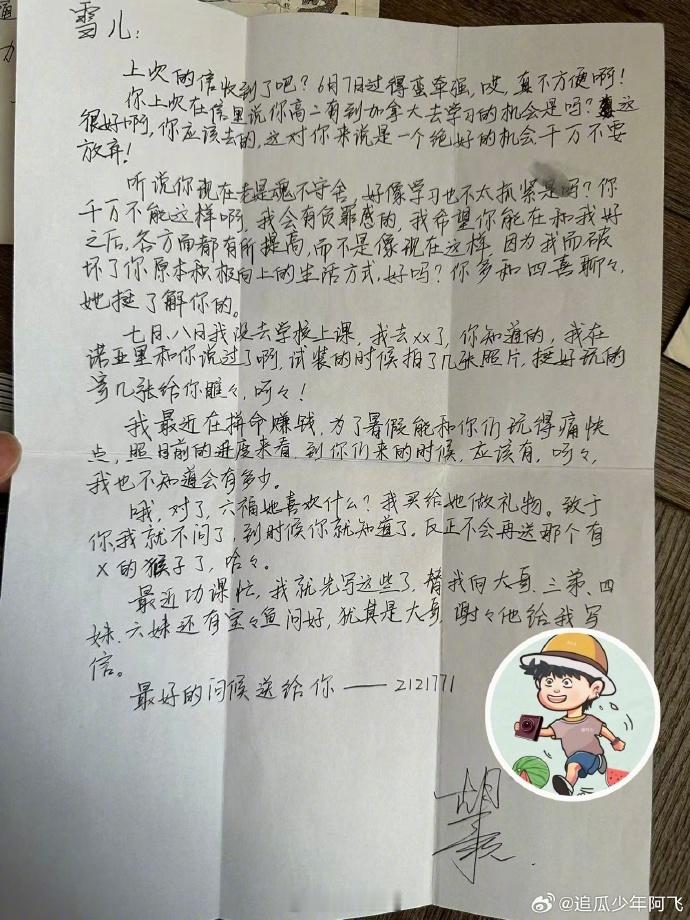 雪儿:
上次的信收到了吧?6月7日过得蛮牵强,哎,真不方便啊!
你上次在信里说你高二有到加拿大去学习的机会是吗?这
很好啊,你应该去的,这对你来说是一个绝好的机会,千万不要
放弃!
听说你现在老是魂不守舍,好像学习也不太抓紧是吗?你
千万不能这样啊,我会有负罪感的,我希望你能在和我好
之后,各方面都有所提高,而不是像现在这样,因为我而破
坏了你原本积极向上的生活方式,好吗?你多和四喜聊々,
她挺了解你的。
七月、八月我没去学校上课,我去xx了,你知道的,我在
诺亚里和你说过了啊,试装的时候拍了几张照片,挺好玩的
寄几张给你瞧々,呵々!
我最近在拼命赚钱,为了暑假能和你们玩得痛快
点,照目前的进度来看,到你们来的时候,应该有,呵々,
我也不知道会有多少。
哦,对了,六福她喜欢什么?我买给她做礼物。致于
你,我就不问了,到时候你就知道了。反正不会再送那个有
X的猴子了,哈々。
最近功课忙,我就先写这些了,替我向大哥、三弟、四
妹、六妹还有宝々鱼问好,犹其是大哥,谢々他给我写
信。
最好的问候送给你——2121771
胡
@追瓜少年阿飞